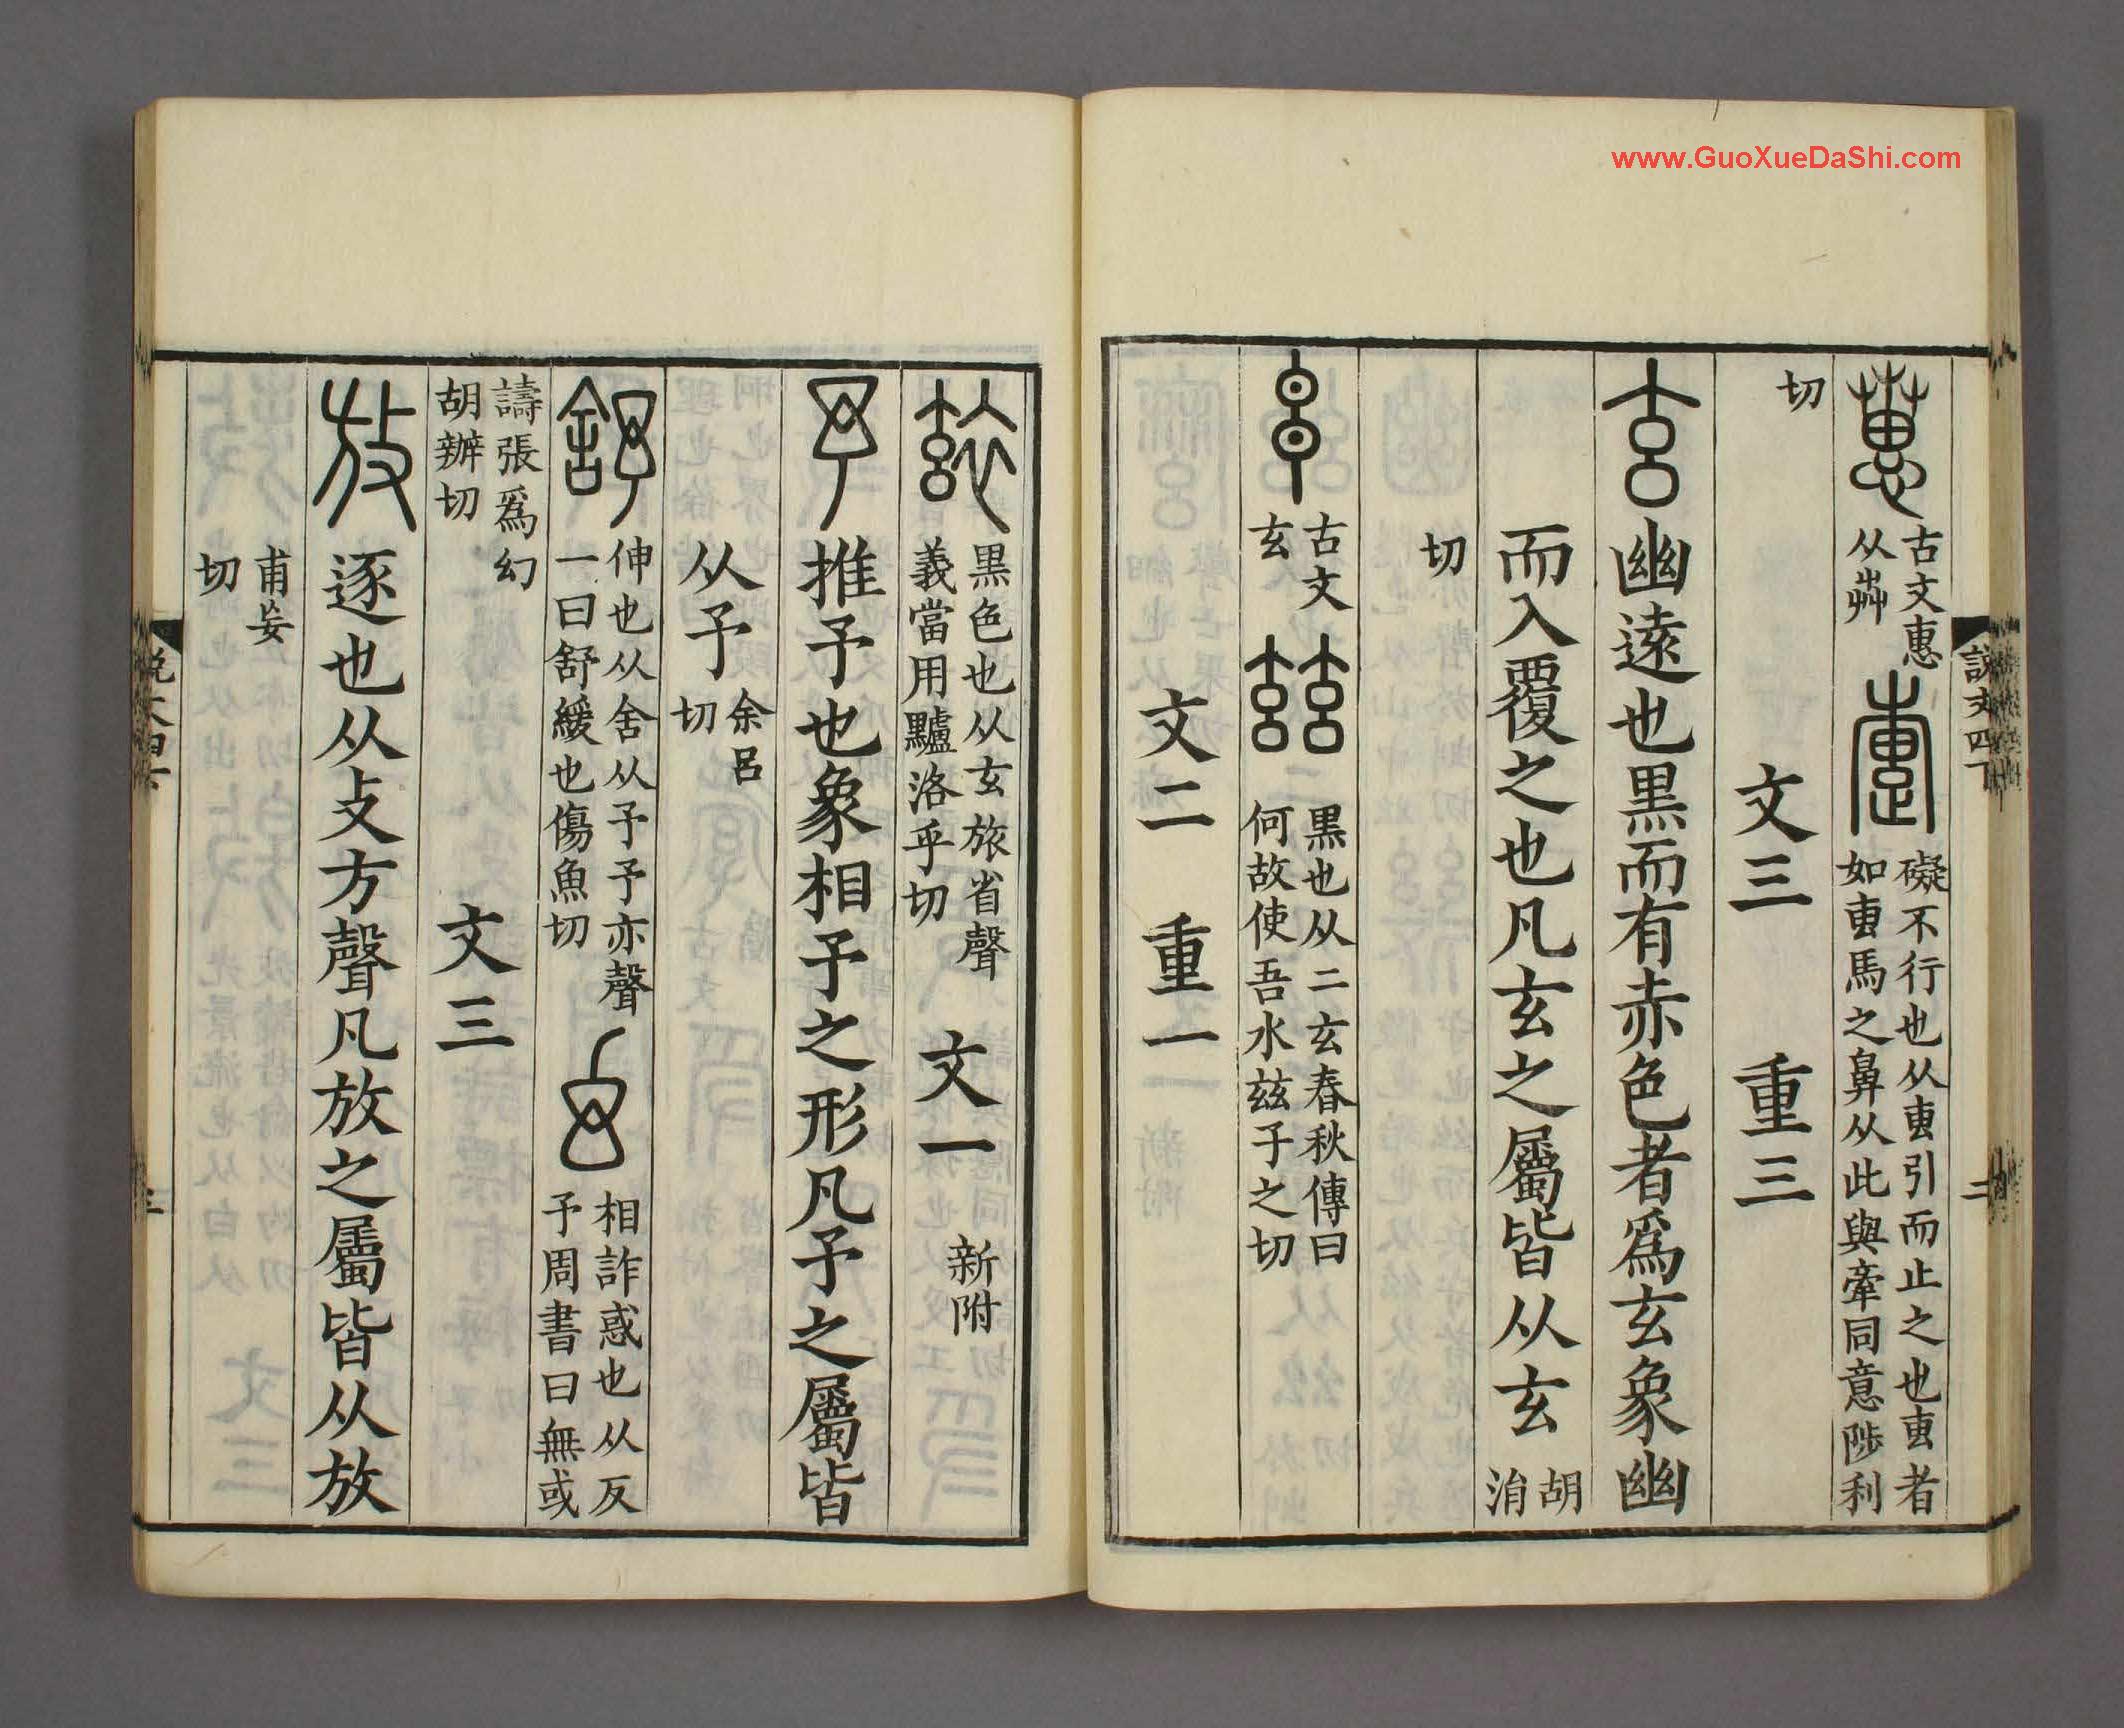 www.GuoXueDaShi.com
說文四下
二
古文惠
从艸
礙不行也从叀引而止之也叀者
如叀馬之鼻从此與牽同意陟利
切
文三 重三
玄 幽遠也黒而有赤色者爲玄象幽
而入覆之也凡玄之屬皆从玄 胡
涓
切
古文
玄
兹 黒也从二玄春秋傳曰
何故使吾水兹子之切
文二 重一
黒色也从玄旅省聲
義當用黸洛乎切
文一 新附
予 推予也象相予之形凡予之屬皆
从予 余吕
切
舒 伸也从舍从予予亦聲
一曰舒緩也傷魚切
幻 相詐惑也从反
予周書曰無或
譸張爲幻
胡辦切
文三
放 逐也从攴方聲凡放之屬皆从放
甫妄
切
三